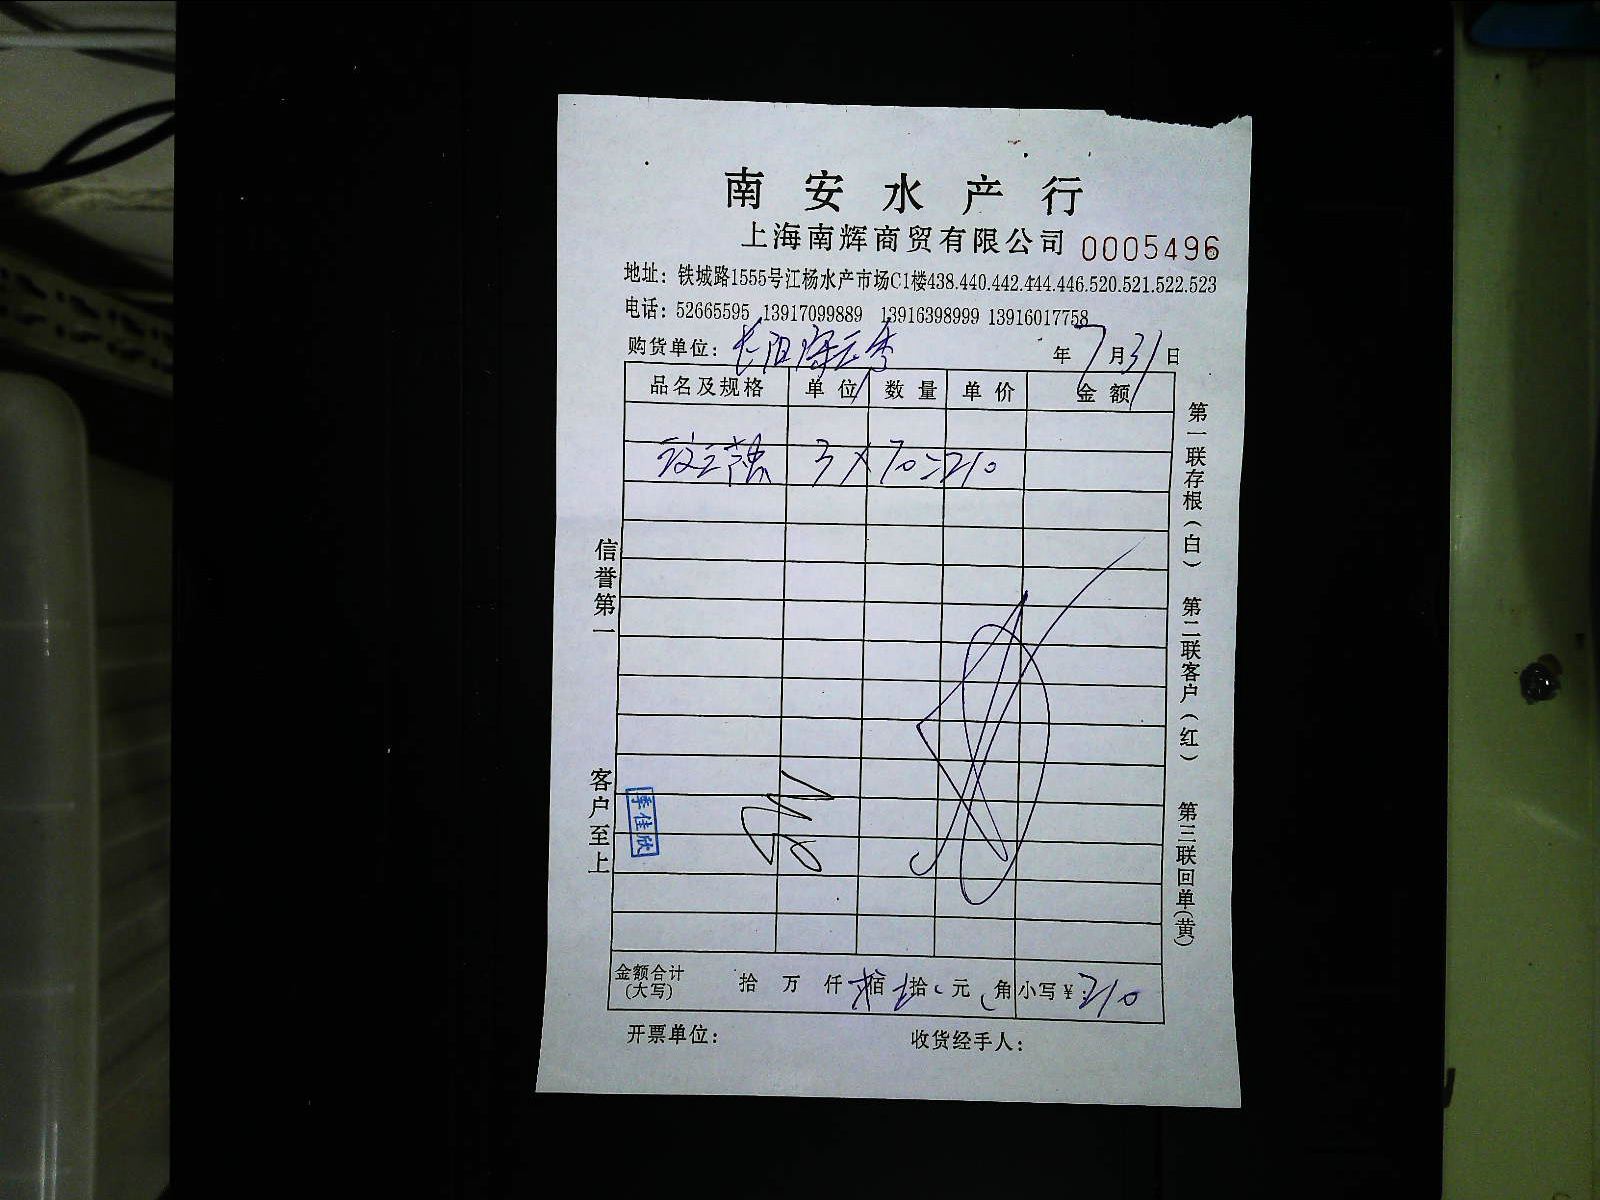 南安水产行
上海南辉商贸有限公司 0005496
地址：铁城路1555号江杨水产市场C1楼438.440.442.444.446.520.521.522.523
电话：52665595 13917099889 13916398999 13916017758
购货单位：长阳
年 7 月 31 日
品名及规格 单位 数量 单价 金额
3 × 70 = 210
信誉第一
客户至上
李佳欣
第一联存根（白） 第二联客户（红） 第三联回单(黄)
金额合计(大写) 拾 万 仟 贰 佰 壹 拾 元 角 小写￥：210
开票单位： 收货经手人：